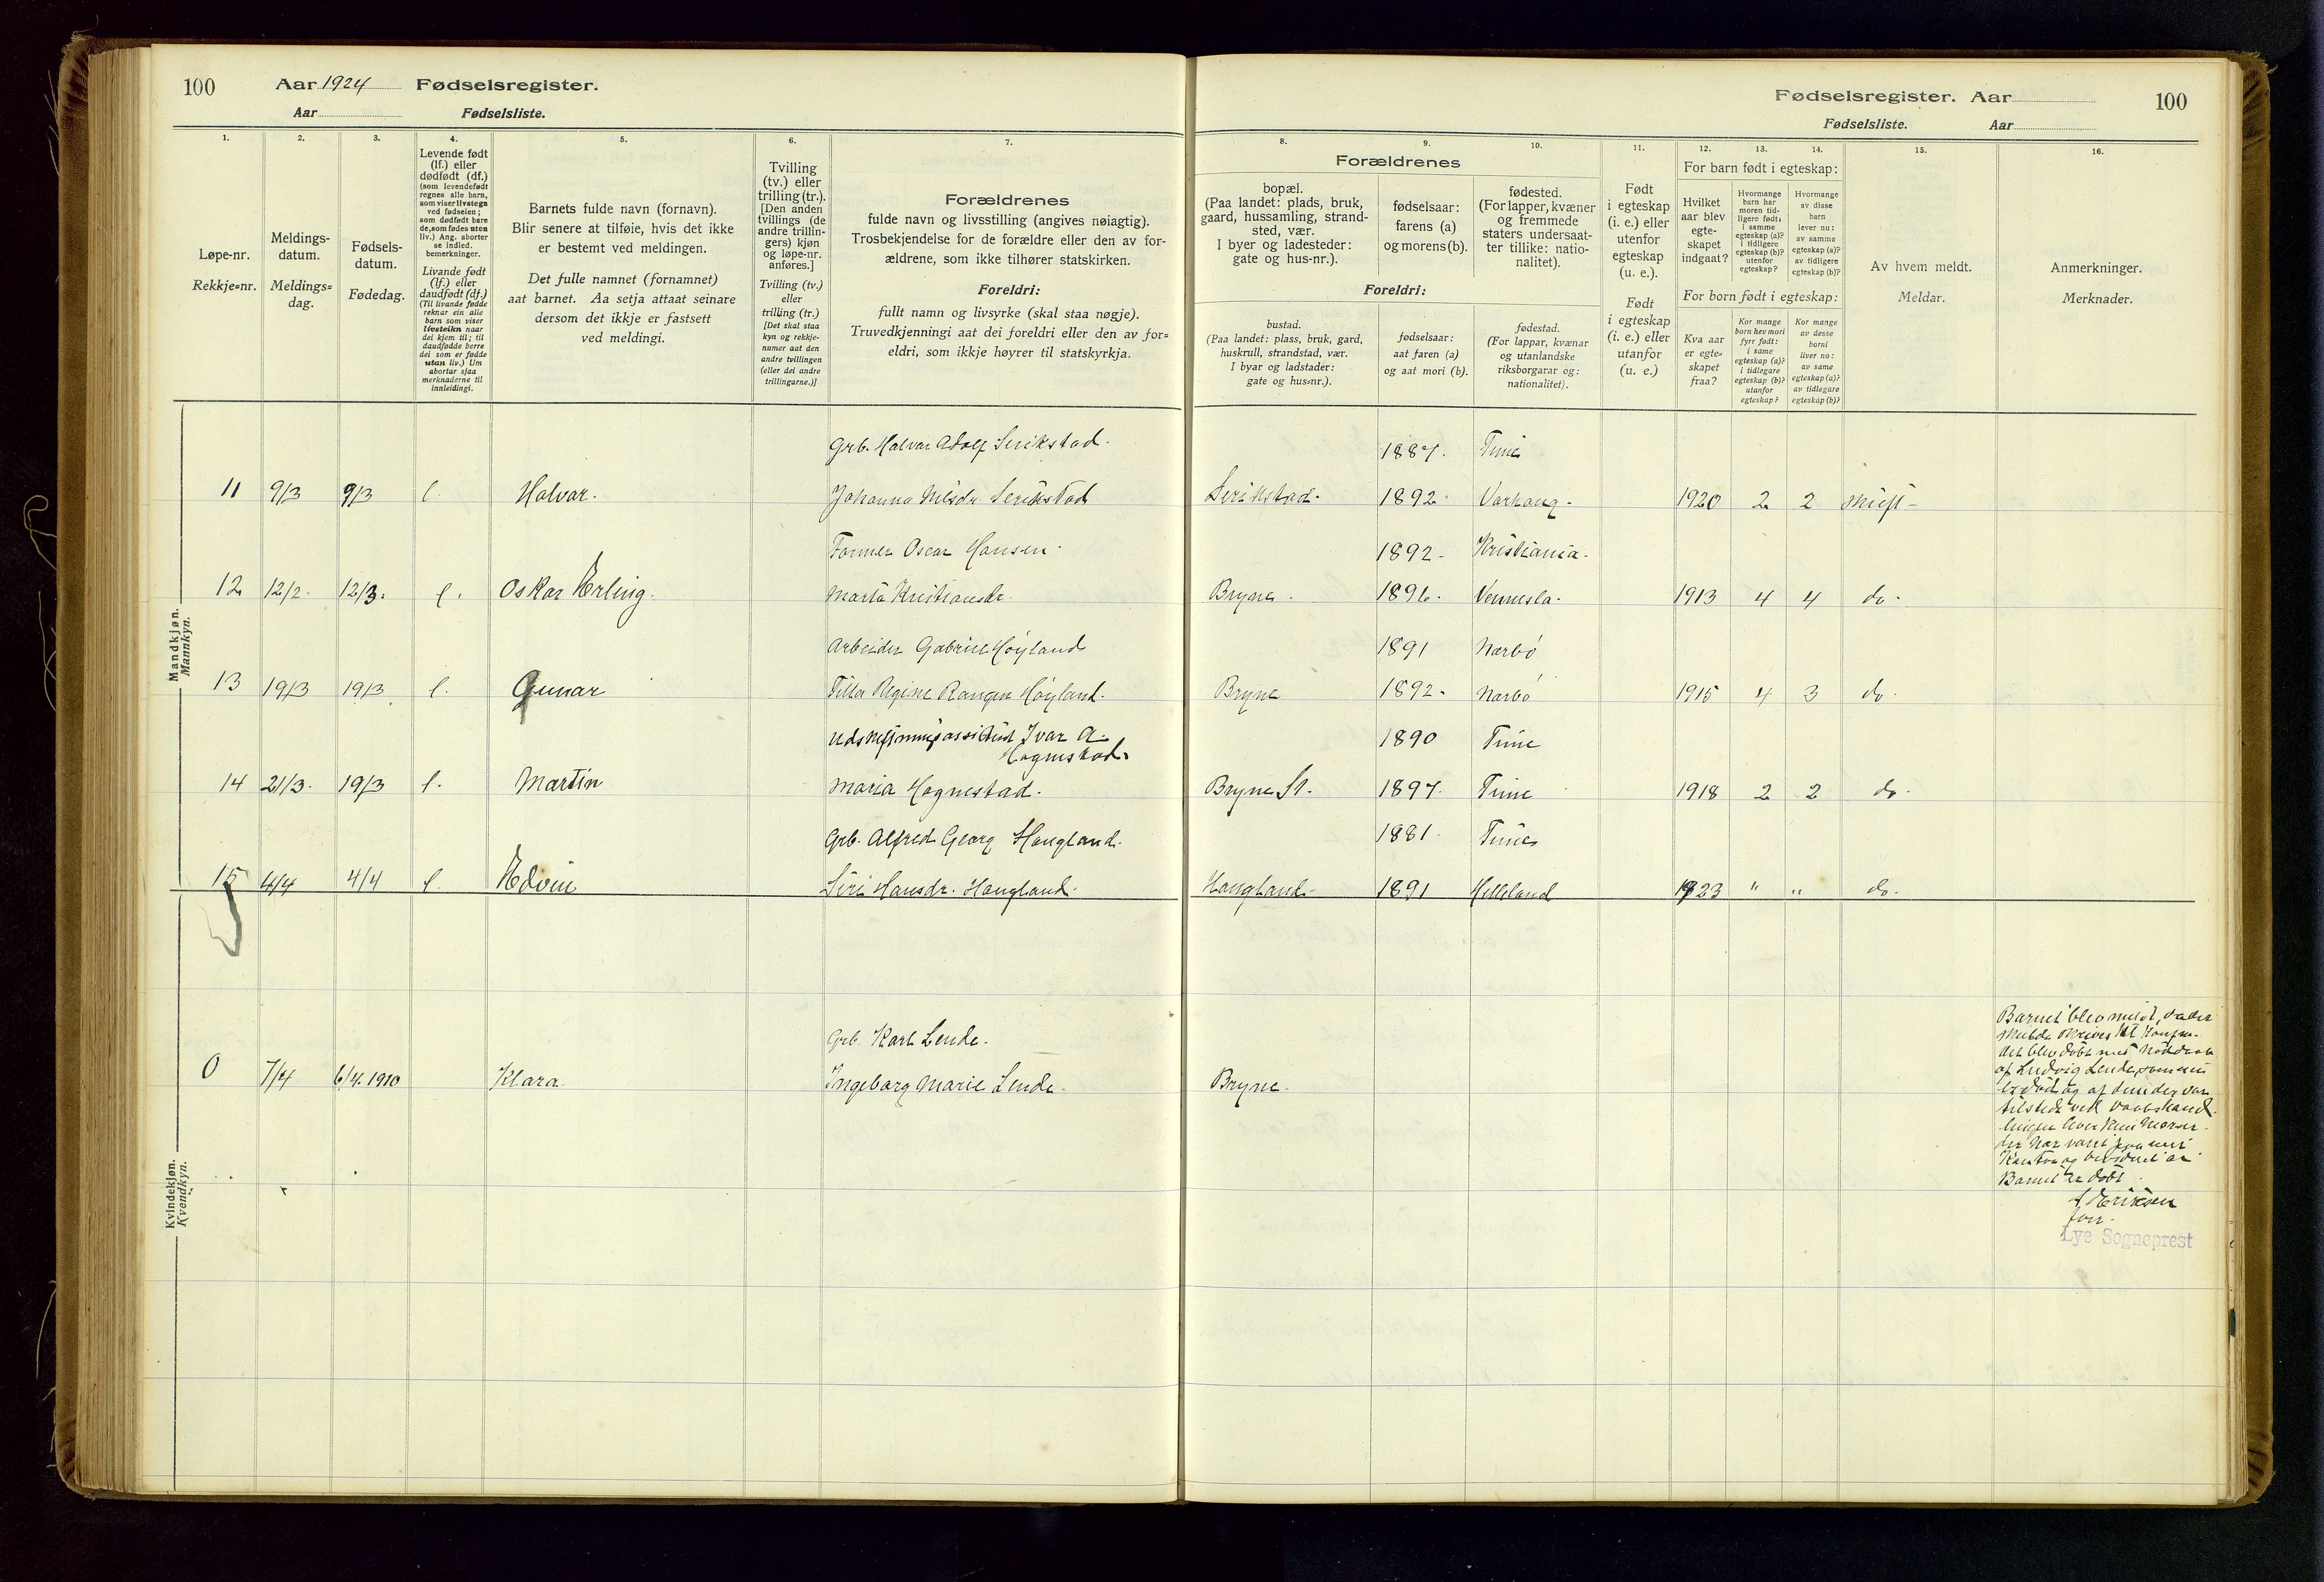 100 Aar 1924 Fødselsregister.
Aar Fødselsliste.
Fødselsregister. Aar 100
Fødselsliste. Aar
1. 2. 3. 4. 5. 6. 7. 8. 9. 10. 11. 12. 13. 14. 15. 16.
Løpe-nr.
Rekkje=nr.
Meldings-
datum.
Meldings=
dag.
Fødsels-
datum.
Fødedag.
Levende født
(lf.) eller
dødfødt (df.)
(som levendefødt
regnes alle barn,
som viser livstegn
ved fødselen;
som dødfødt bare
de, som fødes uten
liv.) Ang. aborter
se indled.
bemerkninger.
Livande født
(lf.) eller
daudfødt (df.)
(Til livande fødde
reknar ein alle
barn som viser
livsteikn naar
dei kjem til; til
daudfødde berre
dei som er fødde
utan liv.) Um
abortar sjaa
merknaderne til
innleidingi.
Barnets fulde navn (fornavn).
Blir senere at tilføie, hvis det ikke
er bestemt ved meldingen.
Det fulle namnet (fornamnet)
aat barnet. Aa setja attaat seinare
dersom det ikkje er fastsett
ved meldingi.
Tvilling
(tv.) eller
trilling (tr.).
[Den anden
tvillings (de
andre trillin-
gers) kjøn
og løpe-nr.
anføres.]
Tvilling (tv.)
eller
trilling (tr.)
[Det skal staa
kyn og rekkje-
numer aat den
andre tvillingen
(eller dei andre
trillingarne.)]
Forældrenes
fulde navn og livsstilling (angives nøiagtig).
Trosbekjendelse for de forældre eller den av for-
ældrene, som ikke tilhører statskirken.
Foreldri:
fullt namn og livsyrke (skal staa nøgje).
Truvedkjenningi aat dei foreldri eller den av for=
eldri, som ikkje høyrer til statskyrkja.
Forældrenes
bopæl.
(Paa landet: plads, bruk,
gaard, hussamling, strand-
sted, vær.
I byer og ladesteder:
gate og hus-nr.).
fødselsaar:
farens (a)
og morens (b).
fødested.
(For lapper, kvæner
og fremmede
staters undersaat-
ter tillike: natio-
nalitet).
Foreldri:
bustad.
(Paa landet: plass, bruk, gard,
huskrull, strandstad, vær.
I byar og ladstader:
gate og hus=nr.).
fødselsaar:
aat faren (a)
og aat mori (b).
fødestad.
(For lappar, kvænar
og utanlandske
riksborgarar og:
nationalitet).
Født
i egteskap
(i. e.) eller
utenfor
egteskap
(u. e.).
Født
i egteskap
(i. e.) eller
utanfor
(u. e.)
For barn født i egteskap:
Hvilket
aar blev
egte-
skapet
indgaat?
Hvormange
barn har
moren tid-
ligere født:
i samme
egteskap (a)?
i tidligere
egteskap (b)?
utenfor
egteskap?
Hvormange
av disse
barn
lever nu:
av samme
egteskap (a)?
av tidligere
egteskap (b)?
For born født i egteskap:
Kva aar
er egte-
skapet
fraa?
Kor mange
born hev mori
fyrr født:
i same
egteskap (a)?
i tidlegare
egteskap (b)?
utanfor
egteskap?
Kor mange
av desse
borni
liver no:
av same
egteskap (a)?
av tidlegare
egteskap (b)?
Av hvem meldt.
Meldar.
Anmerkninger.
Merknader.
Mandkjøn.
Mannkyn.
Grb. Halvar Adolf Serikstad. 1887. Time
11 9/3 9/3 l. Halvar. Johanna Nilsdr. Serikstad Serikstad. 1892. Varhaug. 1920 2 2
Former Oscar Hansen. 1892. Kristiania.
12 12/2. 12/3. l. Oskar Erling. Marta Kristiansdr. Bryne. 1896. Vennesla. 1913 4 4 do.
Arbeider Gabriel Høyland 1891 Nærbø
13 19/3 19/3 l. Gunar Tilla Regine Rangen Høyland. Bryne 1892. Nærbø 1915 4 3 do.
Udskiftningsassistent Ivar A. Hognestad. 1890 Time
14 21/3. 19/3 l. Martin Maria Hognestad. Bryne St. 1897. Time 1918 2 2 do.
Grb. Alfred Georg Haugland. 1881. Time
15 4/4 4/4 l. Edvin Siri Hansdr. Haugland. Haugland. 1891 Helleland 1923 " " do.
Kvindekjøn.
Kvendkyn.
Grb. Karl Lende.
0 7/4 6/4. 1910 Klara. Ingeborg Marie Lende. Bryne.
Barnet blev meldt, da det
skulde skrives til Konfirm.
Det blev døbt med Nøddaab
af Ludvig Lende, som nu
er død og af dem der var
tilstede ved Daabshand-
lingen lever kun Moren
der har været paa mit
Kontor og bevidnet at
Barnet er døbt.
Eriksen
Lye Sogneprest